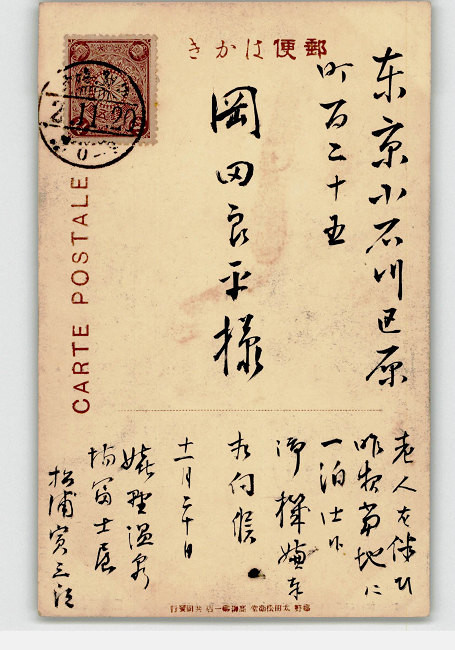 郵便はかき
CARTE POSTALE
東京小石川区原
町百二十五
岡田良平様
老人を伴ひ
昨夜當地ニ
一泊仕候
御機嫌奉
相伺候
十一月二十日
嬉野温泉
場富士屋
松浦寅三郎
2 11 20